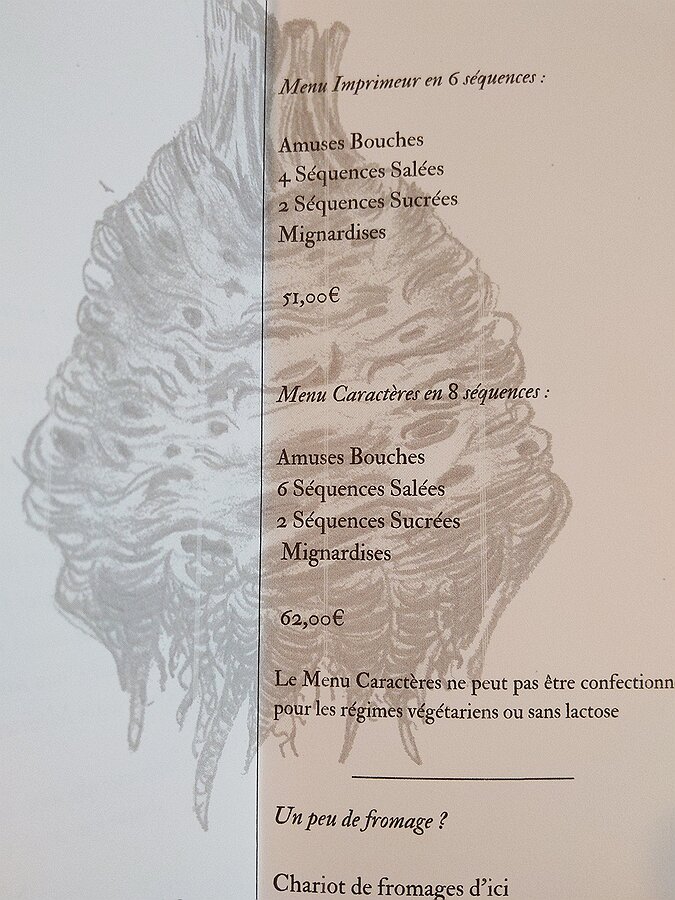 Menu Imprimeur en 6 séquences :
Amuses Bouches
4 Séquences Salées
2 Séquences Sucrées
Mignardises
51,00€
Menu Caractères en 8 séquences :
Amuses Bouches
6 Séquences Salées
2 Séquences Sucrées
Mignardises
62,00€
Le Menu Caractères ne peut pas être confectionn
pour les régimes végétariens ou sans lactose
Un peu de fromage ?
Chariot de fromages d'ici